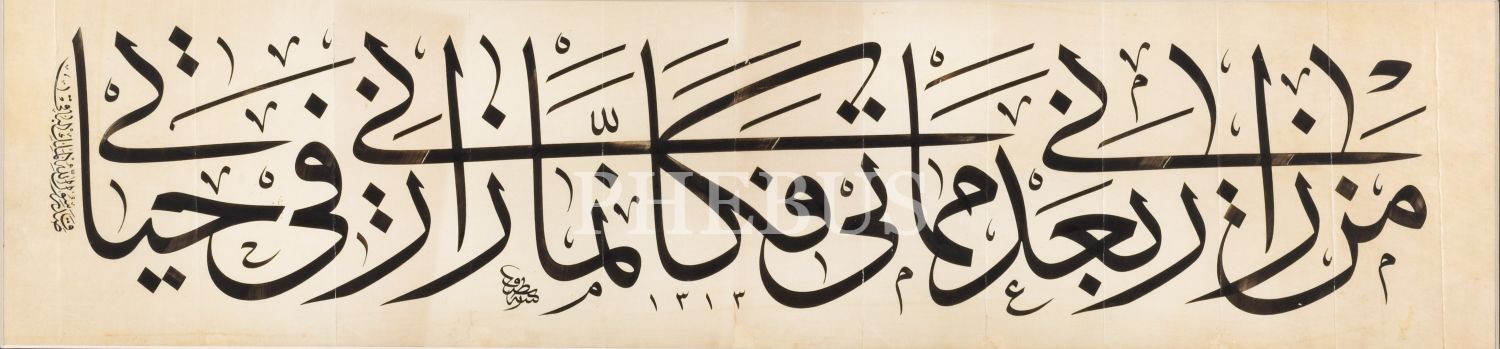 من زارنى بعد مماتى فكانما زارنى فى حياتى
١٣١٣
PHEBUS